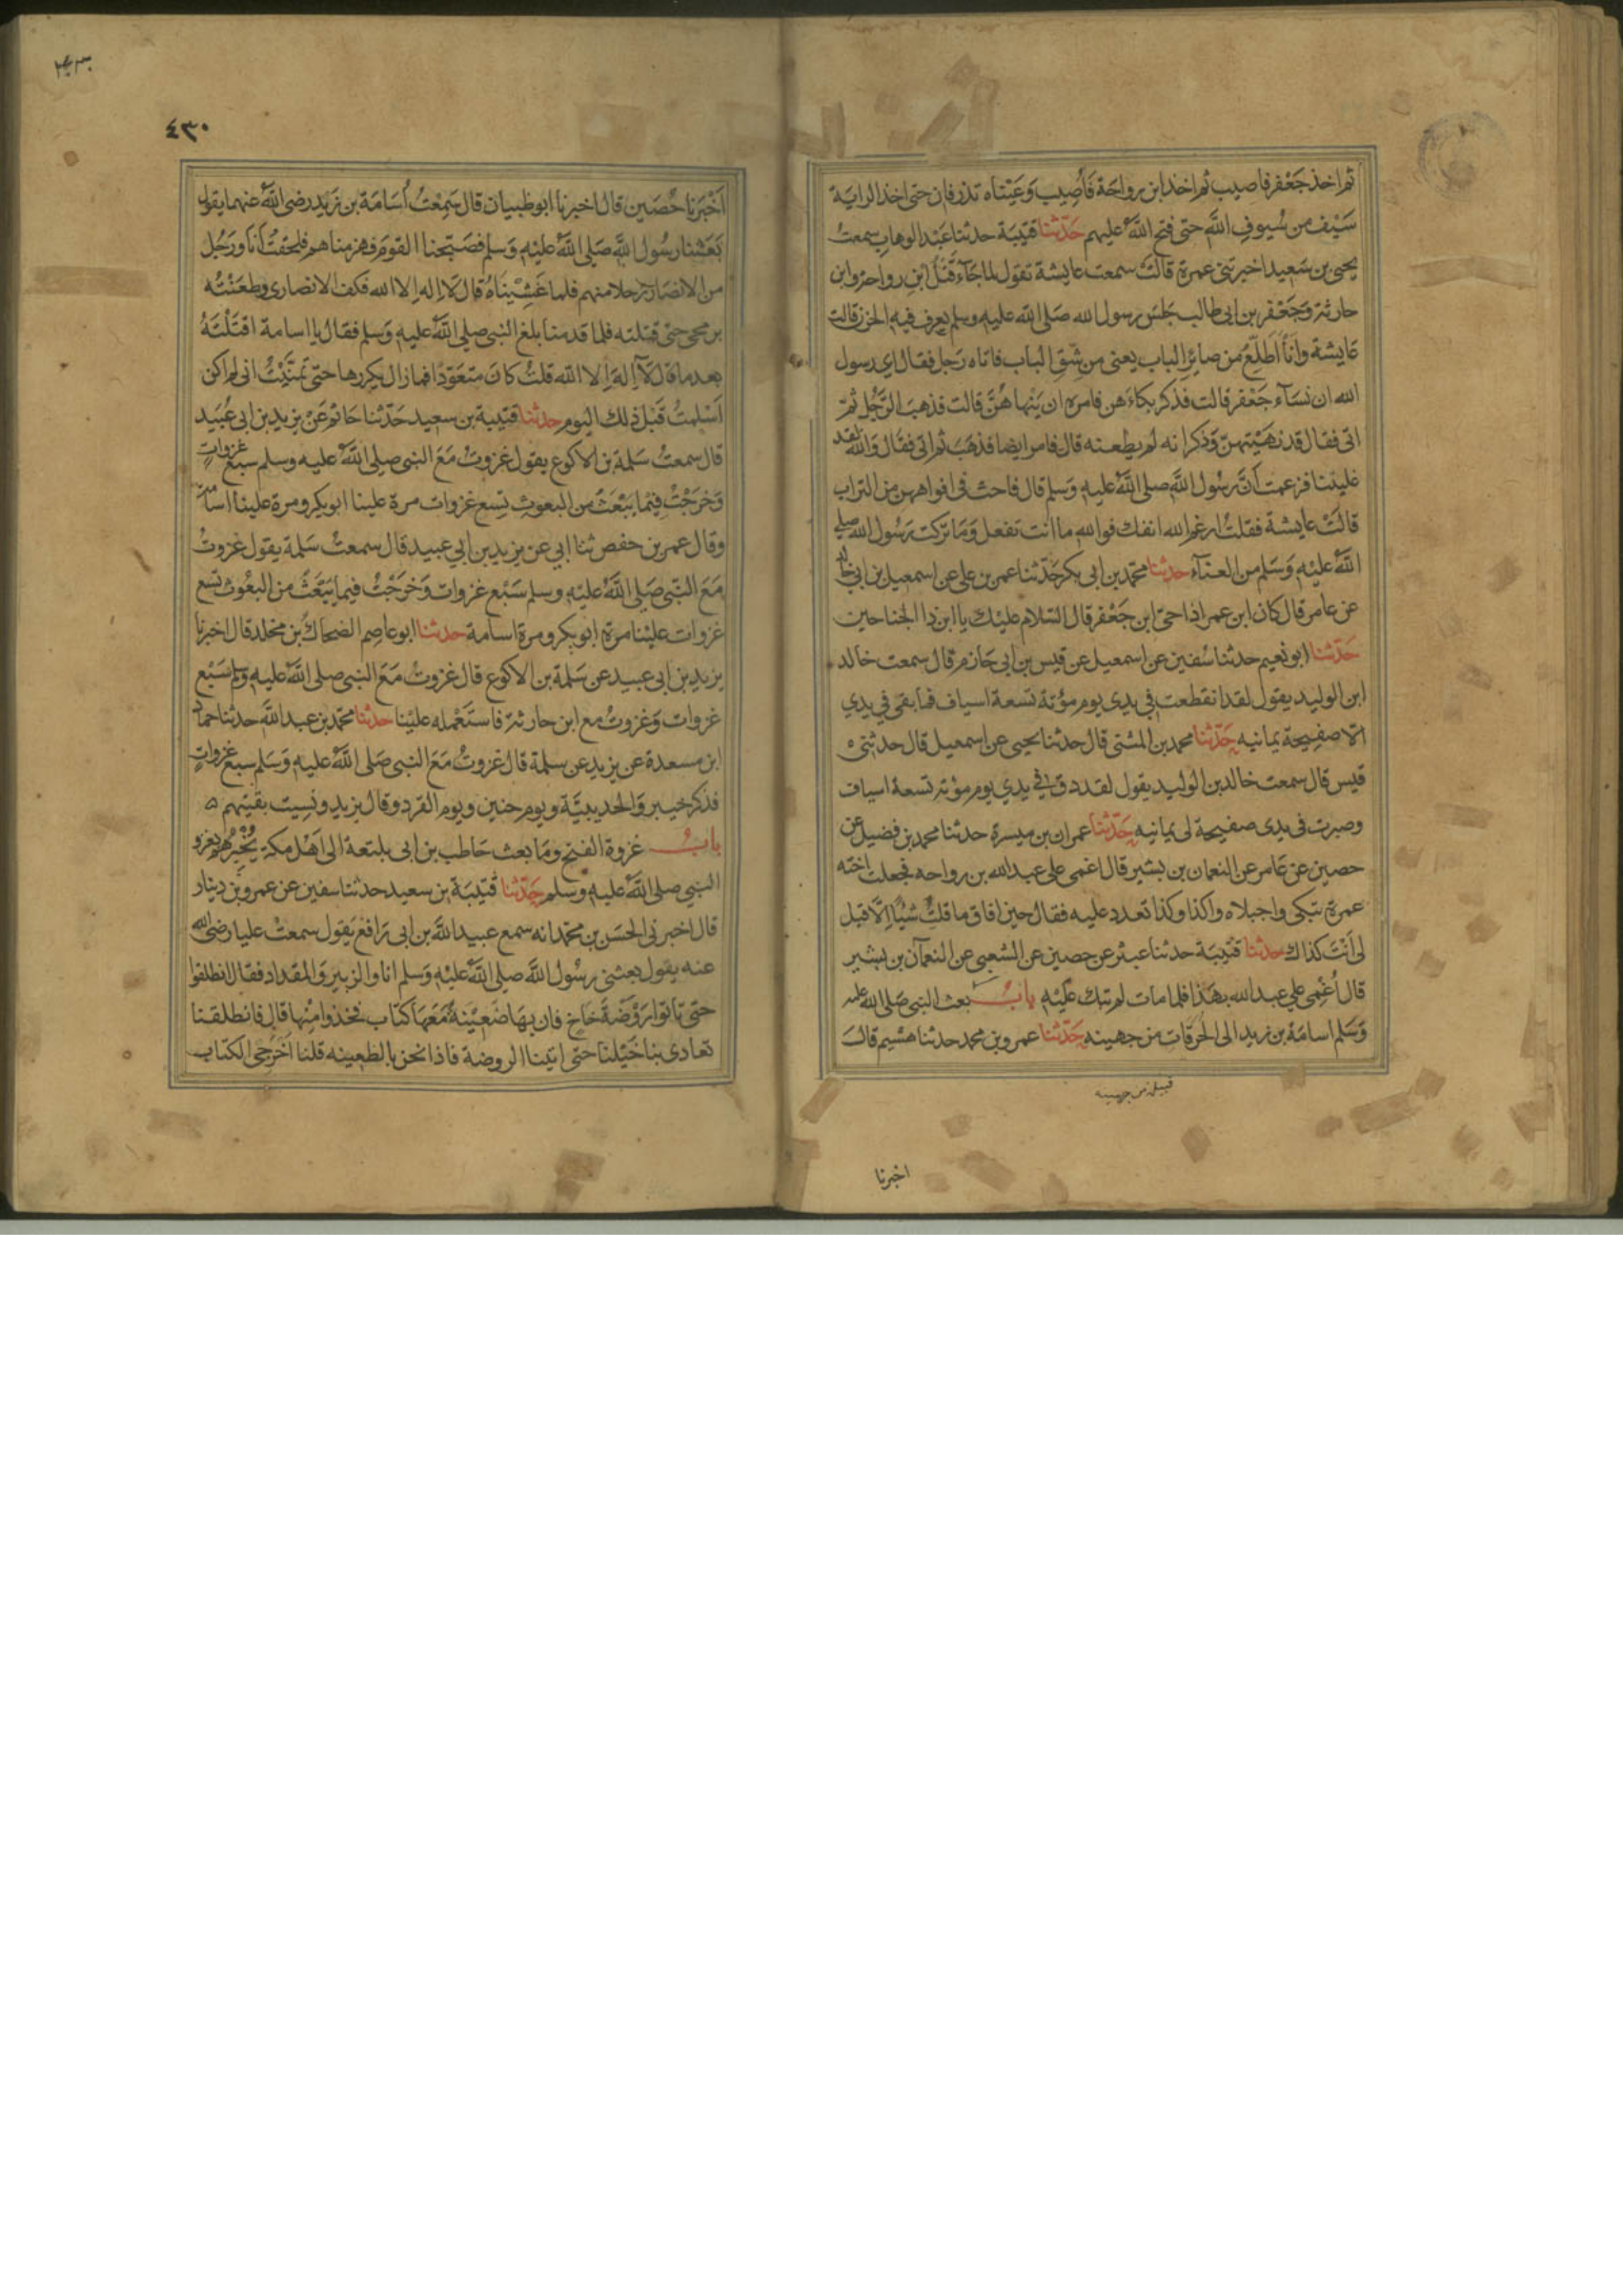 ثم اخذ جَعْفر فاصيب ثم اخذ ابن رواحَة فَأُصِيب وَعَيْناه تذرفان حتى اخذ الرايَة
سَيْف من سُيوفِ اللَّه حتى فتح اللَّه عليهم حَدّثنا قتيبَة حدثنا عَبْد الوهاب سمعتُ
يحيى بن سَعيد اخبرتنى عمرة قالت سمعت عايشة تقول لما جَآء قَتْلُ ابن رواحة وابن
حارثة وَجَعْفر بن ابى طالب جَلسَ رسول الله صَلى الله عليه وسلم يعرف فيه الحزن قالت
عَايشة وانَا اطّلِعُ من صايرِ الباب يعنى من شِقِ الباب فاتاه رَجل فقال اى رسول
الله ان نسَآء جَعْفر قالت فذكر بكاءَهن فامره ان يَنْهاهُنَّ قالت فذهبَ الرَّجُل ثمّ
اتى فقال قد نهَيْتهنّ وَذكر انه لم يطعنه قال فامر ايضا فذهَبَ ثم اتى فقَال وَالله لقد
غلبننا فزعمت اَنَّ رسُول اللَّه صلى اللَّه عليه وَسلم قال فاحث فى افواههن من التراب
قالَتْ عايشة فقلتُ ارغم الله انفك فوالله ما انت تفعل وَمَا تركت رَسُول الله صلى
اللَّه عليه وَسَلم من العنآء حدثنا محمّد بن ابى بكر حَدّثنا عمر بن على عن اسمعيل بن ابى خالد
عن عامر قال كان ابن عمر اذا حيّى ابن جَعْفر قال السّلام عليْك يا ابن ذا الجناحين
حَدّثنا ابو نعيم حدثنا سُفين عن اسمعيل عن قيس بن ابى حَازم قال سمعت خالد
ابن الوليد يقول لقد انقطعت فى يدى يوم مؤتة تسعة اسياف فما بقى فى يدى
الاّ صفيحة يمانيه حَدّثنا محمد بن المثنى قال حدثنا يحيى عن اسمعيل قال حدثنى
قيس قال سمعت خالد بن الوليد يقول لقد دق فى يدى يوم مؤتة تسعة اسياف
وصبرت فى يدى صفيحة لى يمانيه حَدّثنا عمران بن ميسرة حدثنا محمد بن فضيل عن
حصين عن عَامر عن النعمان بن بشير قال اغمى على عبد الله بن رواحه فجعلت اخته
عمرة تبكى واجبلاه واكذا وكذا تعدد عليه فقال حين افاق ما قلت شيًا اِلاّ قيل
لى اَنْتَ كذاك حدثنا قتَيبَة حدثنا عبثر عن حصين عن الشعبى عن النعمآن بن بشير
قال اُغْمِى على عبد الله بهَذا فلما مات لم تبك عَليْه بابُ بعث النبى صَلى الله عليه
وَسَلم اسامَة بن زيد الى الحُرَقات من جهينه حَدّثنا عمرو بن محمد حدثنا هشيم قالَ
قبيلة من جهينه
اخبرنا
٤٣٠
اَخْبَرَنا حُصَين قال اخبرنا ابو ظبيان قال سَمِعْتُ اُسَامَة بن زَيْد رضى اللَّه عنهما يقول
بَعَثنا رسُول اللَّه صَلى اللَّه عليْه وَسلم فصَبّحنا القومَ فهزمناهم فلحقتُ اَنا ورَجُل
من الانصَار رَجلا منهم فلما غَشِيْنَاهُ قال لاَ اِله اِلا الله فكف الانصارى وطعَنْتُه
برمحى حتى قتلته فلما قدمنا بلغ النبى صلى اللَّه عليه وَسلم فقال يا اسامة اقتَلْتَهُ
بعد ما قال لآ اِله اِلا الله قلتُ كانَ متعَوّذًا فما زال يكررها حتّى تمنَّيْتُ انى لم اكن
اَسْلمتُ قَبْل ذلك اليوم حدثنا قتيبة بن سعيد حَدّثنا حَاتم عَنْ يزيد بن ابى عُبَيد
قال سمعتُ سَلمة بن الاكوع يقول غزوتُ مَعَ النبى صلى اللَّه عليه وسلم سبعَ غزواتٍ
وَخرَجْتُ فيما يَبْعَثُ من البعوثِ تِسعَ غزوات مرة علينا ابو بكر ومرة علينا اسامة
وقال عمر بن حفص ثنا ابى عن يزيد بن ابى عبيد قال سمعتُ سَلمة يقول غزوتُ
مَعَ النبّى صَلى اللَّه عليْه وسلم سَبْع غزوات وَخَرَجْتُ فيما يَبْعَثُ من البعُوث تسع
غزوات عليْنا مرة ابو بكر ومرة اسامة حدثنا ابو عاصِم الضحاك بن مخلد قال اخبرنا
يزيد بن ابى عبيد عن سَلمة بن الاكوع قال غزوتُ مَعَ النبى صلى اللَّه عليه وسلم سَبْع
غزوات وَغزوتُ مع ابن حارثة فاستَعْمله عليْنا حدثنا محمّد بن عبد اللَّه حدثنا حماد
ابن مسعدة عن يزيد عن سلمة قال غزوتُ مَعَ النبى صَلى اللَّه عليه وَسَلم سبع غزواتٍ
فذكر خيبر وَالحديبيَّة ويوم حنين ويوم القرد وقال يزيد ونسِيت بقيتهم
بابُ غزوة الفتح ومَا بعث حَاطب بن ابى بلتعة الى اَهْل مكة يُخْبِرُهُم بغزو
النبى صلى اللَّه عليه وسلم حَدّثنا قتَيبَة بن سعيد حدثنا سفين عن عمرو بن دينار
قال اخبرنى الحسَن بن محمّد انه سمع عبيد اللَّه بن ابى رَافع يَقول سمعتُ عليا رضى الله
عنه يقول بعثنى رسُول اللَّه صلى اللَّه عليْه وَسلم انا والزبير وَالمقداد فقال انطلقوا
حتى تاتوا رَوْضَة خَاخ فان بهَا ضَعِيْنَة مَعَهَا كتَاب فخذوا مِنْها قال فانطلقنا
تعادى بنا خَيْلنا حتى اتينا الروضة فاذا نحن بالظعينه قلنا اَخْرجى الكتاب